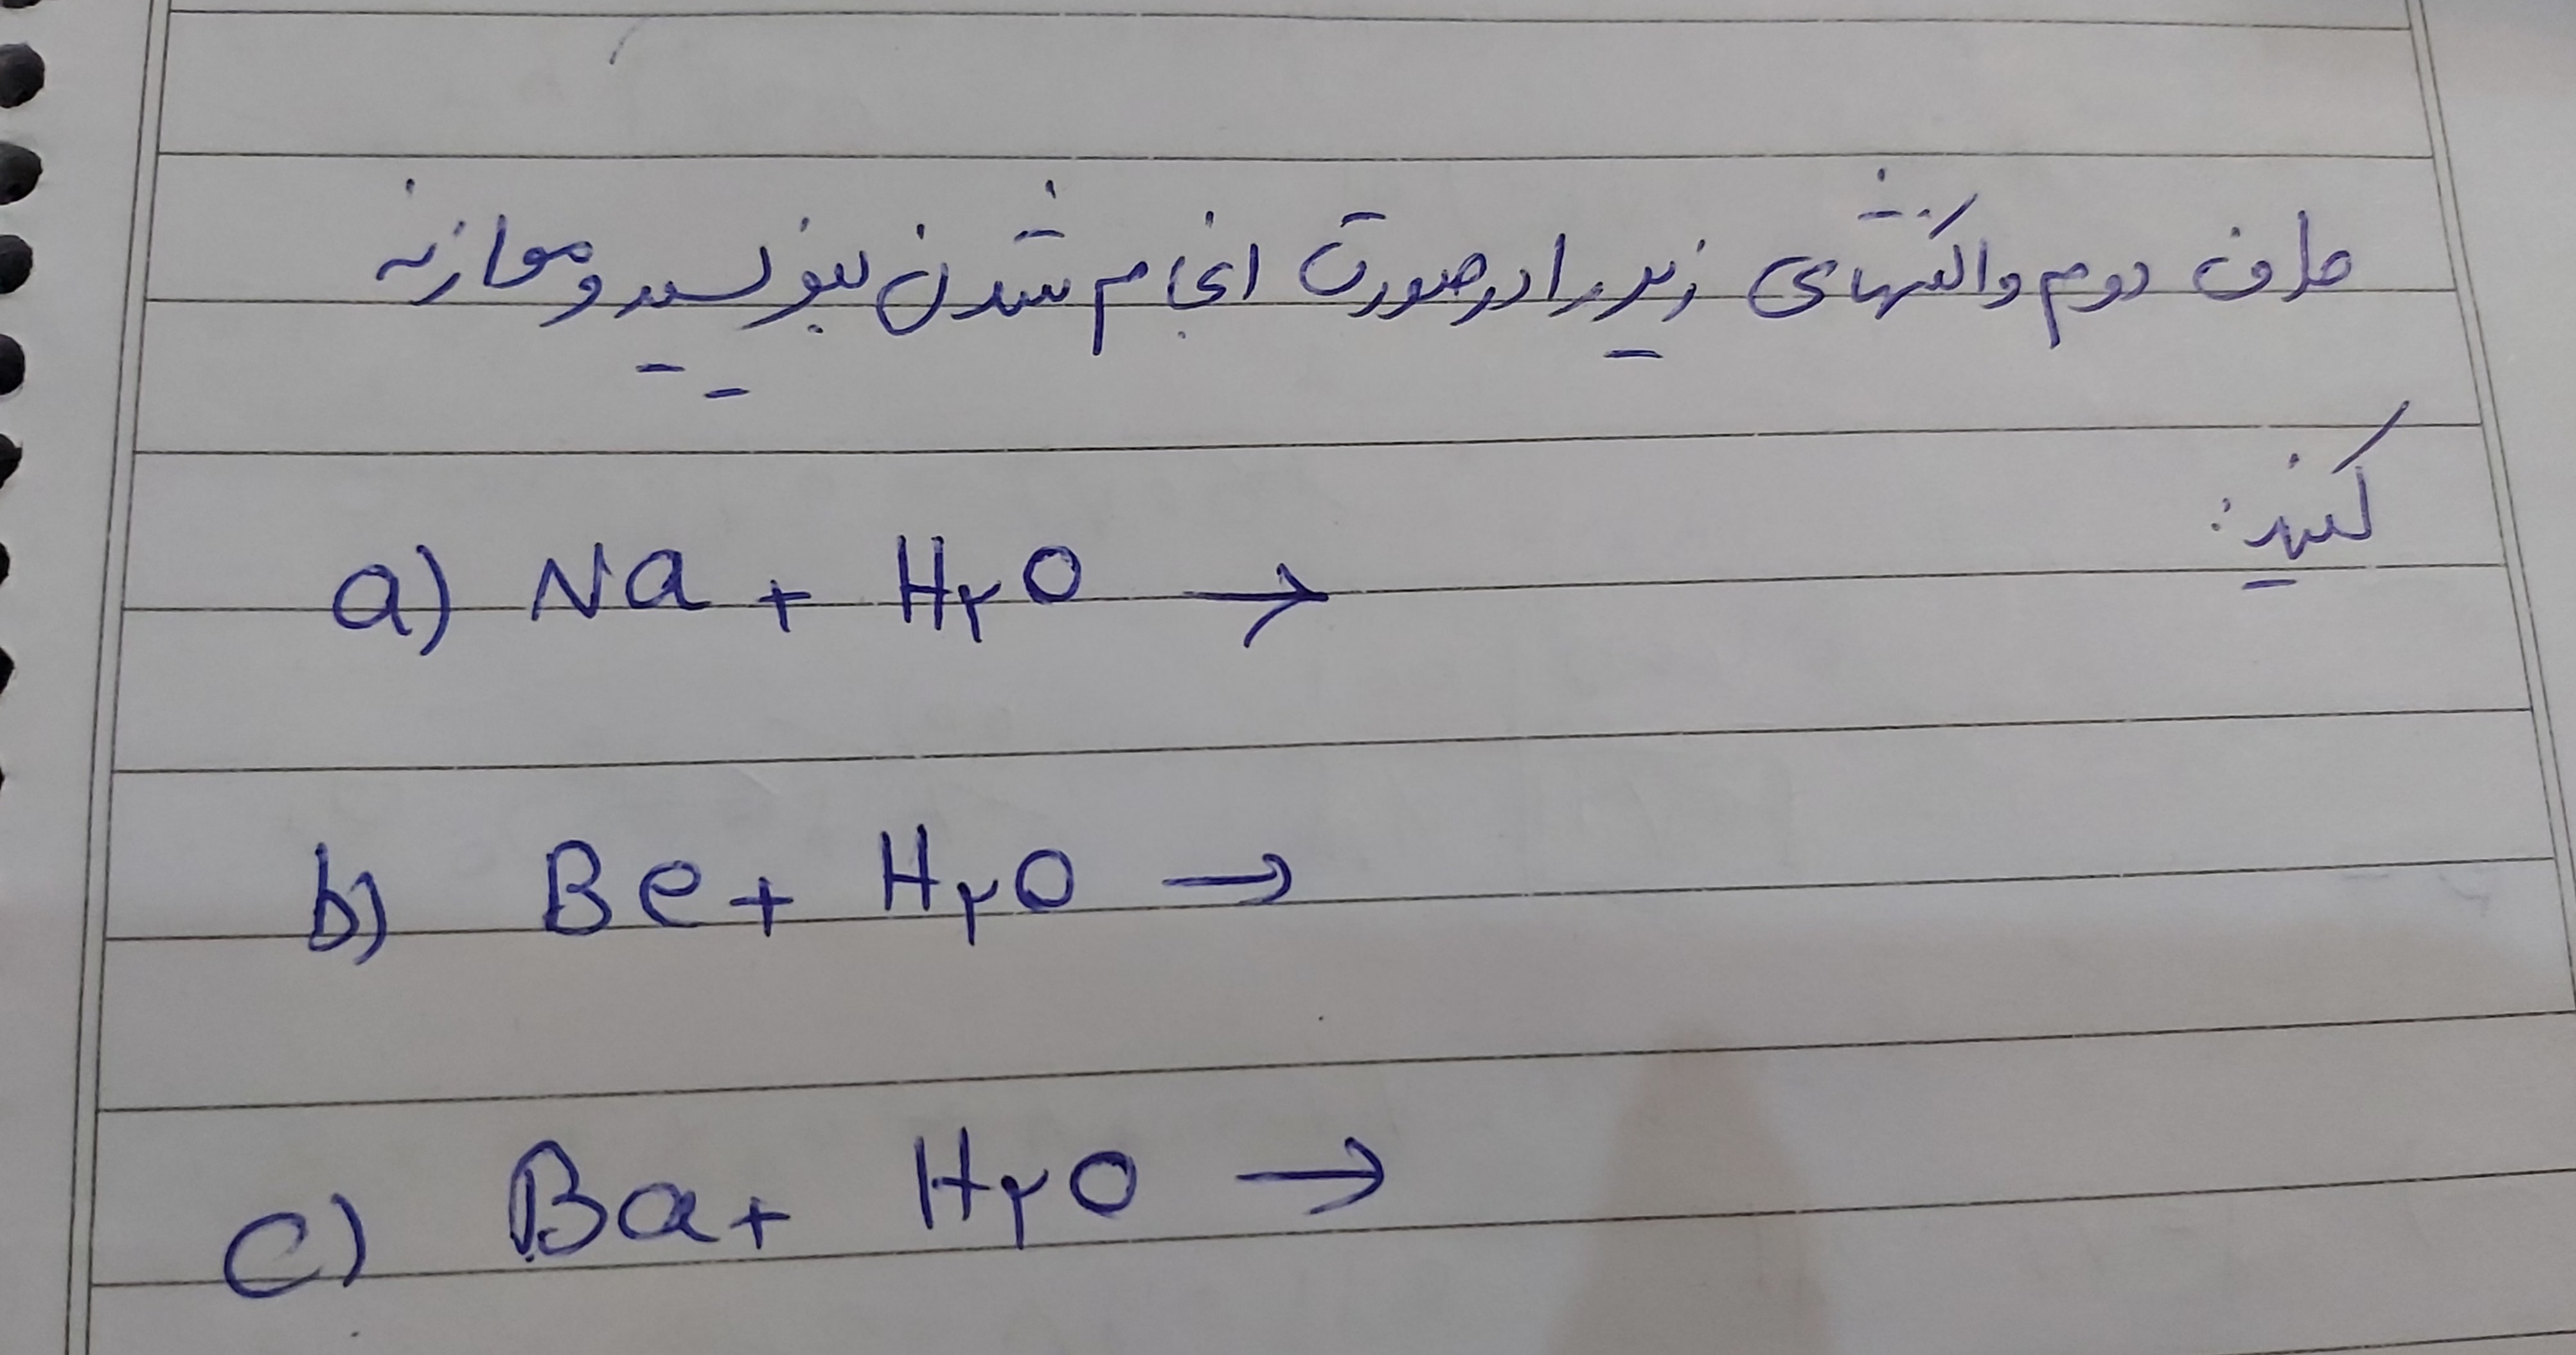 طرف دوم واکنشهای زیر را در صورت انجام شدن بنویسید و موازنه
کنید:
a) Na + H۲O →
b) Be + H۲O →
c) Ba + H۲O →